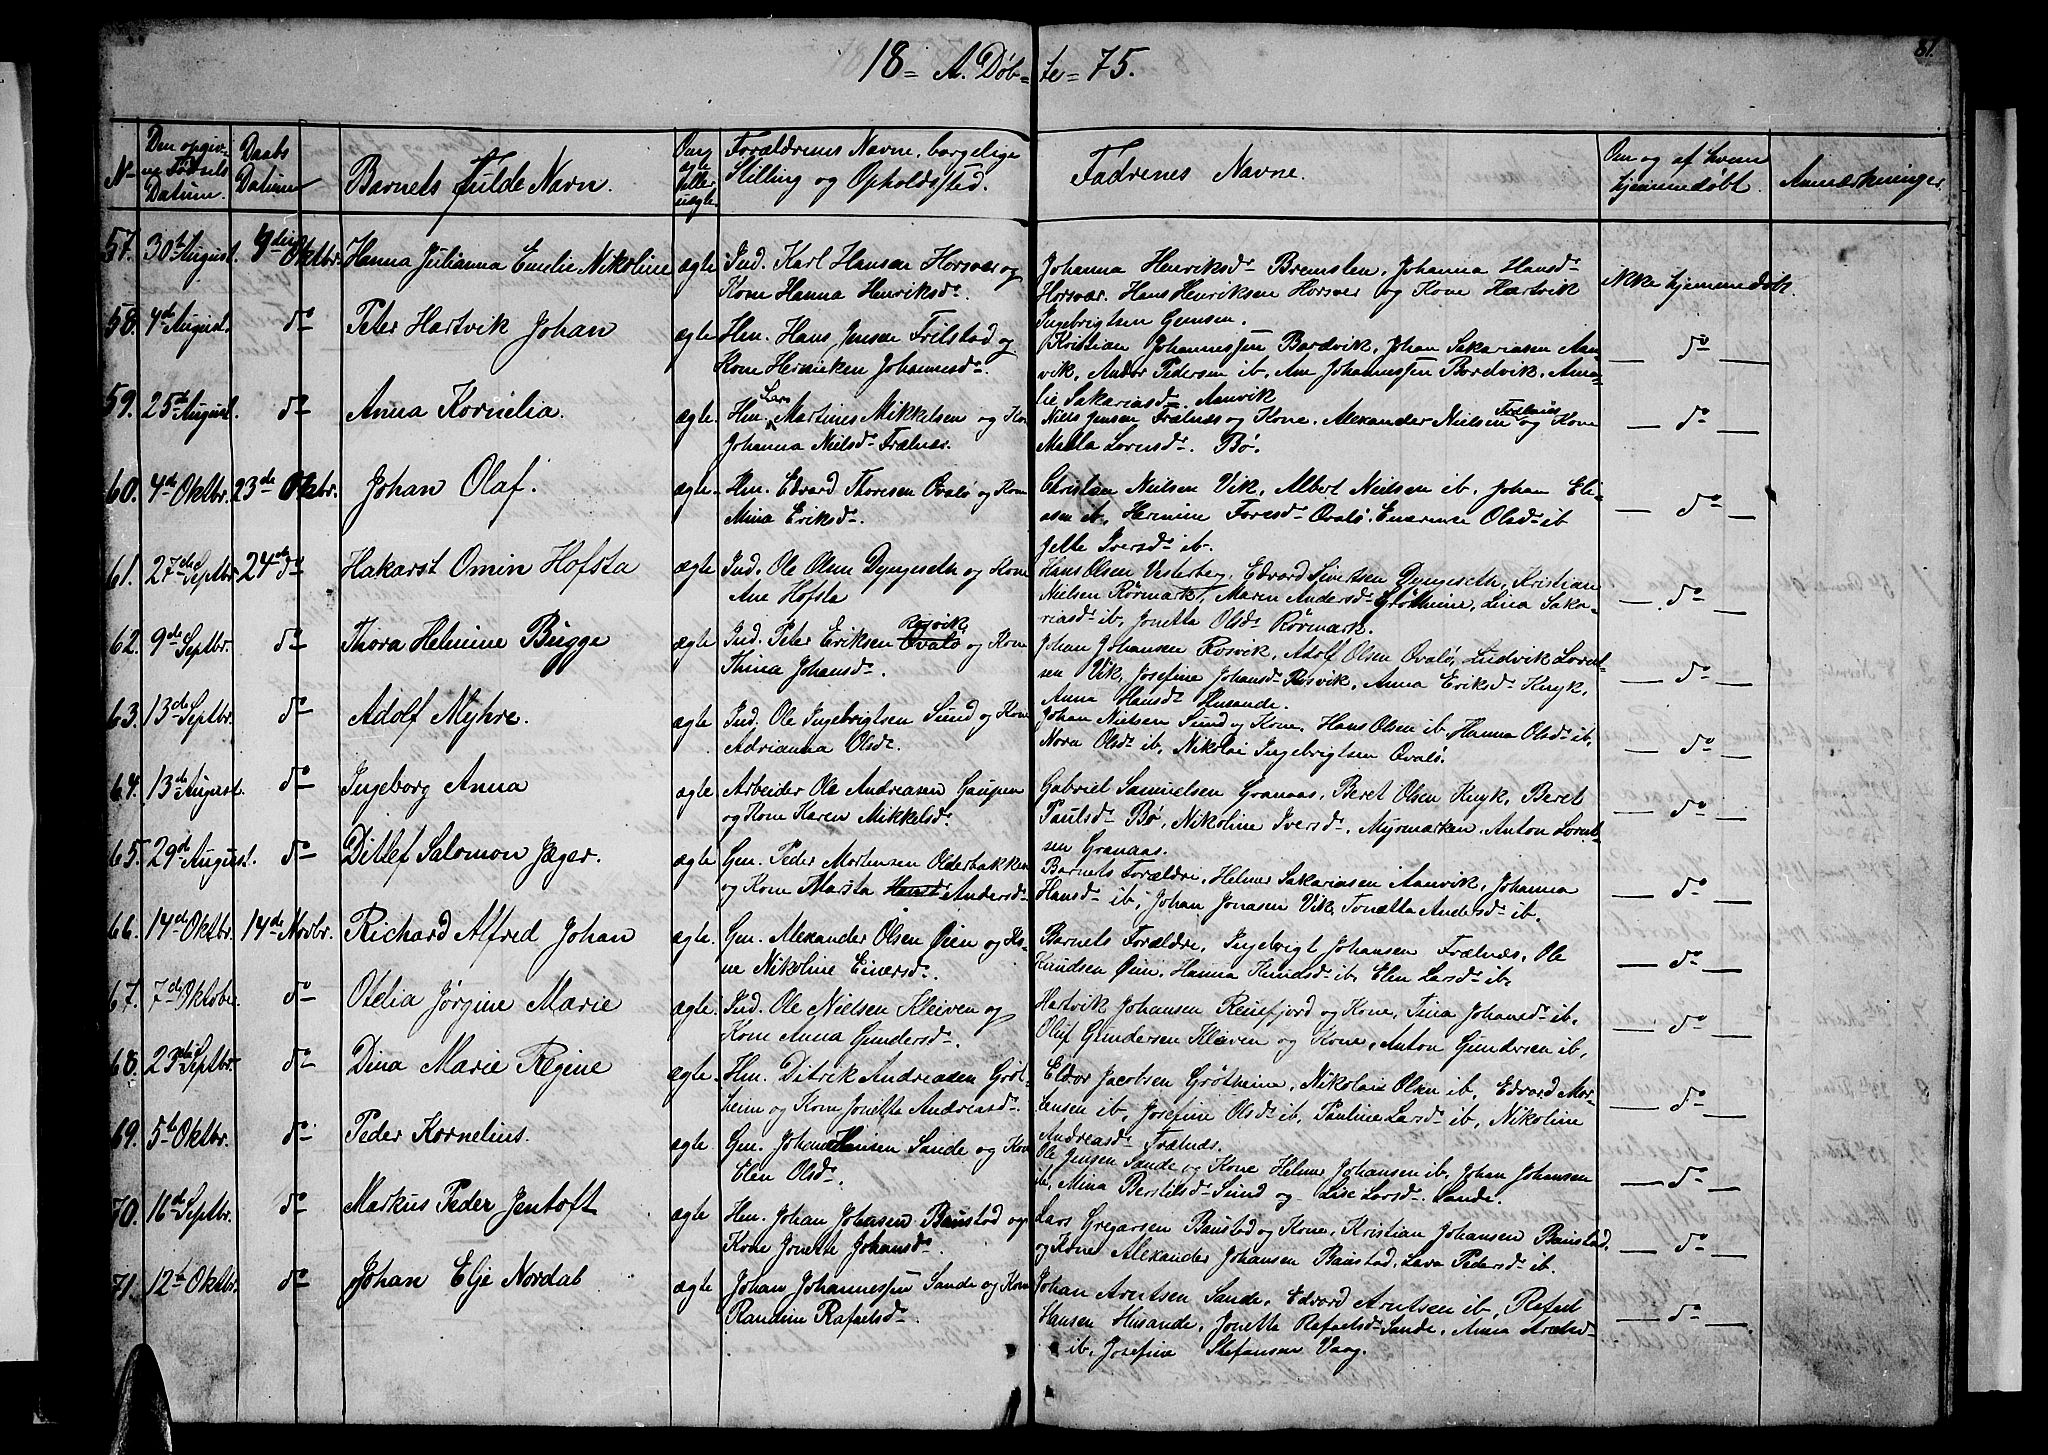 81.
18 = A. Døb= te = 75.
No
Den opgiv-
ne Fødsels
Datum.
Daabs
Datum
Barnets fulde Navn.
Om
ægte
eller
uægte.
Forældrenes Navne, borgelige
Stilling og Opholdssted.
Fadrenes Navne.
Om og af hvem
hjemmedøbt.
Anmærkninger.
57. 30te August. Oktbr. Hanna Julianna Emelie Nikoline ægte Ind. Karl Hansen Horsvær og
Kone Hanna Henriksd.
Johanna Henriksd. Bremsten, Johanna Hansd.
Horsvær. Hans Henriksen Horsvær og Kone Hartvik
Ingebrigtsen Gimsen.
ikke hjemmedøbt.
58. 4de August. do Peter Hartvik Johan ægte Hm. Hans Jensen Frilstad og
Kone Johannesd.
Kristian Johannessen Bordvik, Johan Sakariasen Aan-
vik, Andor Pedersen ib. Ane Johannessen Bordvik, Ama-
lie Sakariasd. Aanvik
do
59. 25de August. do Anna Kornelia. ægte Hm. Lars Martinus Mikkelsen og Ko
Johanna Nielsd. Frælnæs.
Niels Jensen Frælnæs og Kone. Alexander Nielsen Frælnæs og Kone
Bø.
do
60. 4de Oktbr. 23de Oktbr. Johan Olaf. ægte. Hm. Edvard Thoresen Qvalø og Kone
Mina Eriksd.
Christen Nielsen Vik, Albert Nielsen ib, Johan Eli-
asen ib, Hermine Qvalø. Olsd. ib
Iversd. ib.
do
61. 27de Septbr. 24de do Hakarst Omin Hofsta ægte Ind. Ole Olsen Dyngeseth og Kone
Ane Hofsta
Hans Olsen Vesterberg, Edvard Sivertsen Dyngeseth, Kristian
Nielsen Rørmark, Maren Andersd. Grøtheim, Lina Saka-
riasd. ib, Jonetta Olsd. Rørmark.
do
62. 9de Septbr. do Thora Helmine Bugge ægte Ind. Peter Eriksen Rosvik og Kone
Thina Johansd.
Johan Johansen Rosvik, Adolf Olsen Qvalø, Ludvik Lorent-
sen Vik, Josefine Johansd. Rosvik, Anna Eriksd. Knyk,
Anna Hansd. Husande.
do
63. 13de Septbr. do Adolf Myhre. ægte Ind. Ole Ingebrigtsen Sund og Kone
Adrianna Olsd.
Johan Nielsen Sund og Kone, Hans Olsen ib, Hanna Olsd. ib,
Nora Olsd. ib, Nikolai Ingebrigtsen Qvalø.
do
64. 13de August. do Ingeborg Anna ægte Arbeider Ole Andreasen Gaupen
og Kone Karen Mikkelsd.
Gabriel Samuelsen Granaas, Beret Olsen Knyk, Beret
Paulsd. Bø, Nikoline Iversd. Myrmarken, Anton Lorent-
sen Granaas.
do
65. 29de August. do Ditlef Salomon Jæger. ægte Gm. Peder Mortensen Olderbakken
og Kone Marsta Andersd.
Barnets Forældre, Helmer Sakariasen Aanvik, Johanna
Hansd. ib, Johan Jonasen Vik, Tonætta Andersd. ib.
do
66. 14de Oktbr. 14de Novbr. Richard Alfred Johan ægte. Gm. Alexander Olsen Øien og Ko-
ne Nikoline Einersd.
Barnets Forældre, Ingebrigt Johansen Frælnæs, Ole
Knudsen Øien, Hanna Knudsd. ib. Elen Larsd. ib.
do
67. 7de Oktobr. do Otelia Jørgine Marie ægte. Ind. Ole Nielsen Kleiven og
Kone Anna Gundersd.
Hartvik Johansen Reinfjord og Kone, Tina Johansd. ib.
Oluf Gundersen Kleven og Kone, Anton Gundersen ib,
do
68. 23de Septbr. do Dina Marie Regine ægte. Hm. Ditrik Andreasen Grøt-
heim og Kone Jonetta Andreasd.
Eldor Jacobsen Grøtheim, Nikolai Olsen ib, Edvard Mor-
tensen ib, Josefine Olsd. ib, Pauline Larsd. ib, Nikoline
Andreasd. Frælnæs.
do
69. 5te Oktbr. do Peder Kornelius. ægte Gm. Johan Hansen Sande og Kone
Elen Olsd.
Ole Jensen Sande og Kone Helmer Johansen ib, Johan Johansen
ib, Mina Berntsd. Sund og Lise Larsd. Sande.
do
70. 16de Septbr. do Markus Peder Jentoft ægte Hm. Johan Johansen Baustad og
Kone Jonetta Johansd.
Lars Gregarsen Baustad og Kone, Kristian Johansen Baustad,
og Kone Alexander Johansen Baustad, Lava Pedersd. ib.
do
71. 12te Oktbr. do Johan Elje Nordal ægte Johan Johannessen Sande og Kone
Randine Rafaelsd.
Johan Arntsen Sande, Edvard Arntsen ib, Rafael
Hansen Husande, Jonetta Rafaelsd. Sande, Anna
ib, Josefine Stefansen Vaag.
do